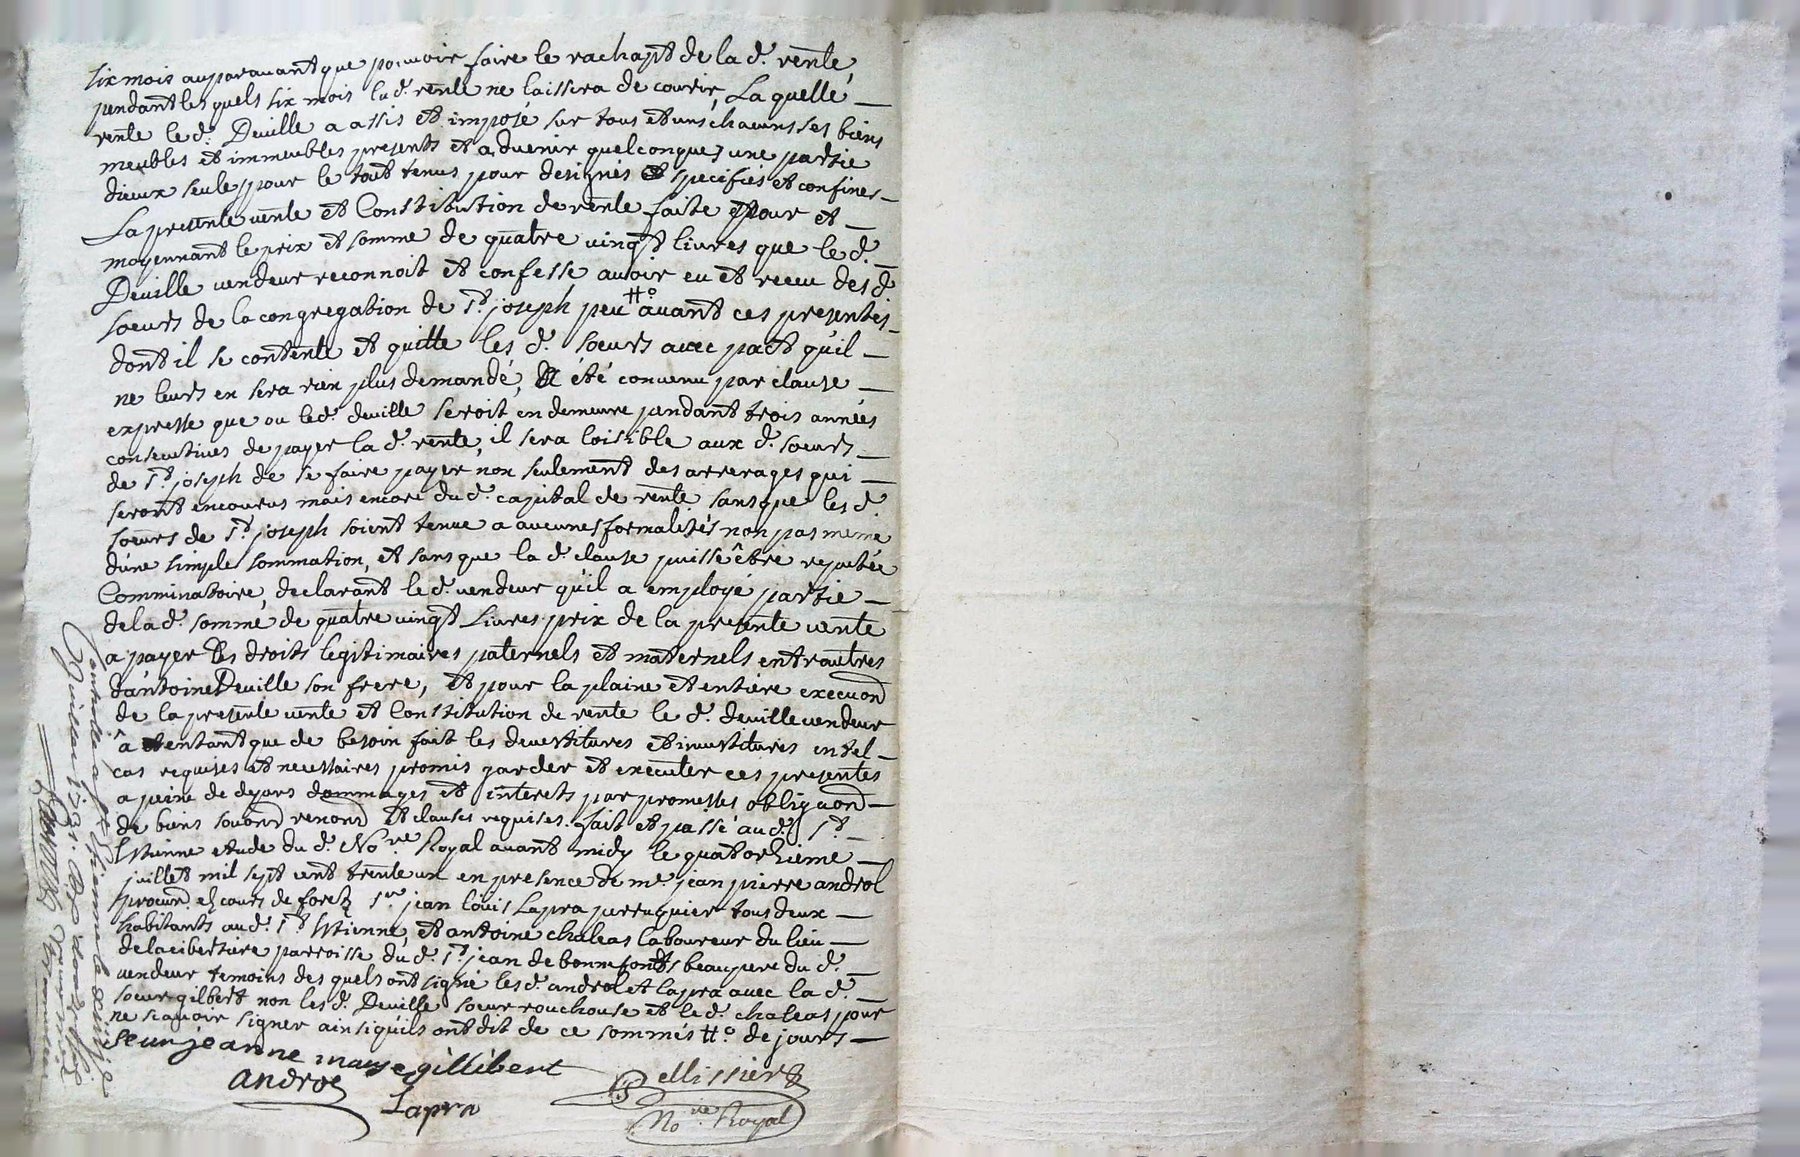 six mois auparavant que pouvoir faire le rachapt de la d. rente,
pendant les quels six mois la d. rente ne laissera de courir, La quelle
rente le d. Deville a assis et imposé sur tous et uns chacuns ses biens
meubles et immeubles presents et a,duenir quelconques une partie
dieux seule pour le tout tenus pour designés et specifiés et confines
La presente vente et Constitution de rente faite pour et
moyennant le prix et somme de quatre vingt livres que le d.
Deville vendeur reconnoit et confesse auoir eu et receu des d.
soeurs de la congregation de St. joseph peu #o avant ces presentes
dont il se contente et quitte les d. soeurs avec pact qu'il
ne leurs en sera rien plus demandé, A été convenu par clause
expresse que ou le d. deville seroit en demeure pendant trois années
consecutives de payer la d. rente, il sera loisible aux d. soeurs
de St. joseph de se faire payer non seulement des arrerages qui
seront encourus mais encore du d. capital de rente sans que les d.
soeurs de St. joseph soient tenue a aucunes formalités non pas meme
d'une simple sommation, et sans que la d. clause puisse être reputée
Comminatoire, declarant le d. vendeur qu'il a employé partie
de la d. somme de quatre vingt Livres prix de la presente vente
a payer les droits legitimaires paternels et maternels entrautres
d'antoine Deville son frere, et pour la plaine et entiere execuon
de la presente vente et Constitution de rente le d. deville vendeur
â et entant que de besoin fait les devestitures et investitures en tel
cas requises et necessaires promis garder et executer ces presentes
a peine de depans dommages et interets par promesses obliguaon
de biens souond renond et clauses requises. fait et passé au d. St.
Estienne etude du d. No.re Royal avant midy le quatorzieme
juillet mil sept cent trente un en presence de me. jean pierre androl
procur. ez cours de forez Sr. jean louis Lapra perruquier tous deux
habitants au d. St. Estienne, et antoine chaleas laboureur du lieu
de la cibertiere parroisse du d. St. jean de bonnefonds beaupere du d.
vendeur temoins des quels ont signé les d. androl et lapra avec la d.
soeur gilbert non les d. Deville soeur rouchouse et le d. chaleas pour
ne scavoir signer ainsi qu'ils ont dit de ce sommés #o de jours
Seur jeanne marye gillibert
androl
Lapra
Pellissier
No.re Royal
Controllé a St. Estienne le quinze
Juillet 1731.